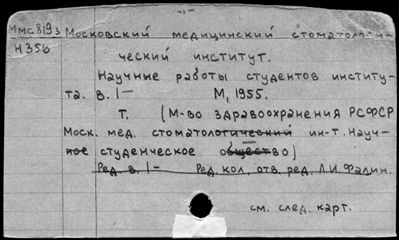 - 1 -
Ммс819з Московский медицинский стоматологи-
Н356 ческий институт.
Научные работы студентов институ-
та. в. I— М, 1955.
т. (М-во здравоохранения РСФСР
Моск. мед. стоматологический ин-т. Науч-
ное студенческое общество)
Ред. в. I— Ред. кол., отв. ред. Л.И. Фалин.
см. след. карт.